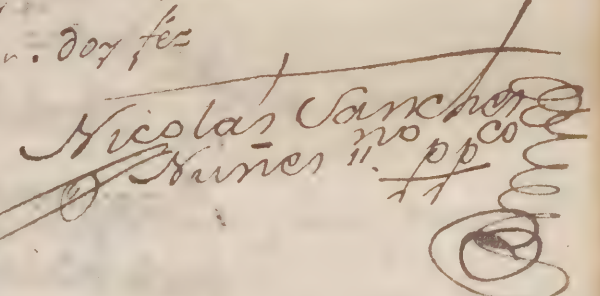 doy fée
Nicolas Sanches
Nuñes no ppco